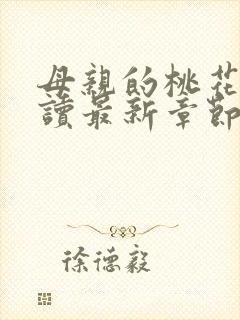 母親的桃花
讀最新章節
徐德毅